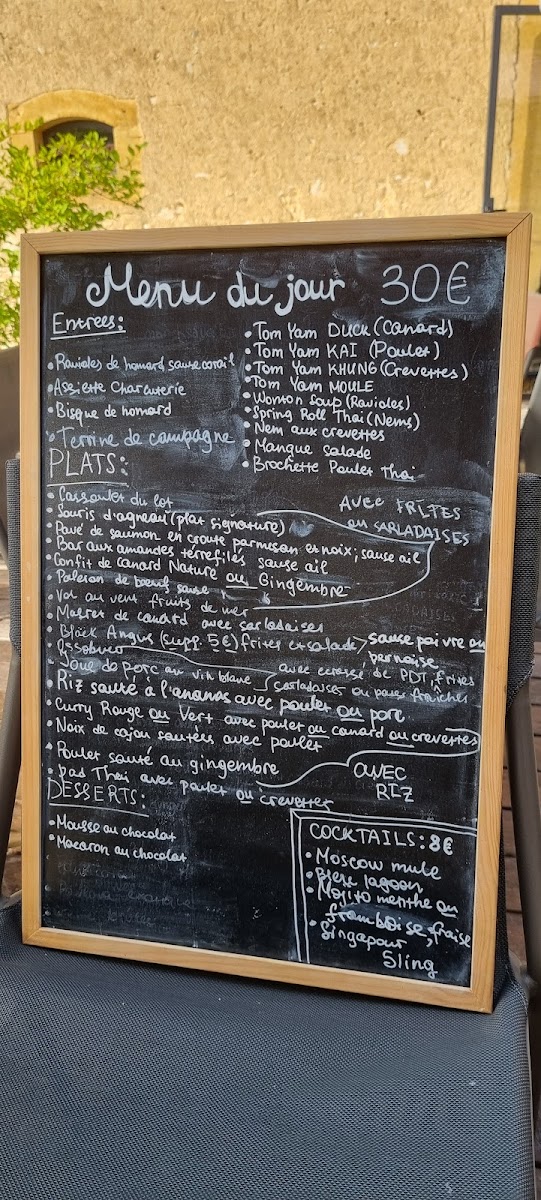 Menu du jour 30€
Entrées:
• Ravioles de homard sauce corail
• Assiette Charcuterie
• Bisque de homard
• Terrine de campagne
• Tom Yam DUCK (Canard)
• Tom Yam KAI (Poulet)
• Tom Yam KHUNG (Crevettes)
• Tom Yam MOULE
• Wonton Soup (Ravioles)
• Spring Roll Thai (Nems)
• Nem aux crevettes
• Mangue salade
• Brochette Poulet Thai
PLATS:
• Cassoulet du lot
• Souris d'agneau (plat signature)
• Pavé de saumon en croute parmesan et noix, sauce ail
• Bar aux amandes terrefilés sauce ail
• Confit de canard Nature ou Gingembre
• Paleron de bœuf sauce
• Vol au vent fruits de mer
AVEC FRITES
ou SARLADAISES
• Magret de canard avec sarladaises
• Black Angus (supp. 5€) frites et salade sauce poivre ou
bernaise
• Ossobuco
• Joue de porc au vin blanc
avec ecrasé de PDT, frites
sarladaises ou pates fraîches
• Riz sauté à l'ananas avec poulet ou porc
• Curry Rouge ou Vert avec poulet ou canard ou crevettes
• Noix de cajou sautées avec poulet
• Poulet sauté au gingembre
• pad Thai avec poulet ou crevettes
AVEC
RIZ
DESSERTS:
• Mousse au chocolat
• Macaron au chocolat
COCKTAILS: 8€
• Moscow mule
• Bleu lagoon
• Mojito menthe ou
framboise, fraise
• Singapour
Sling